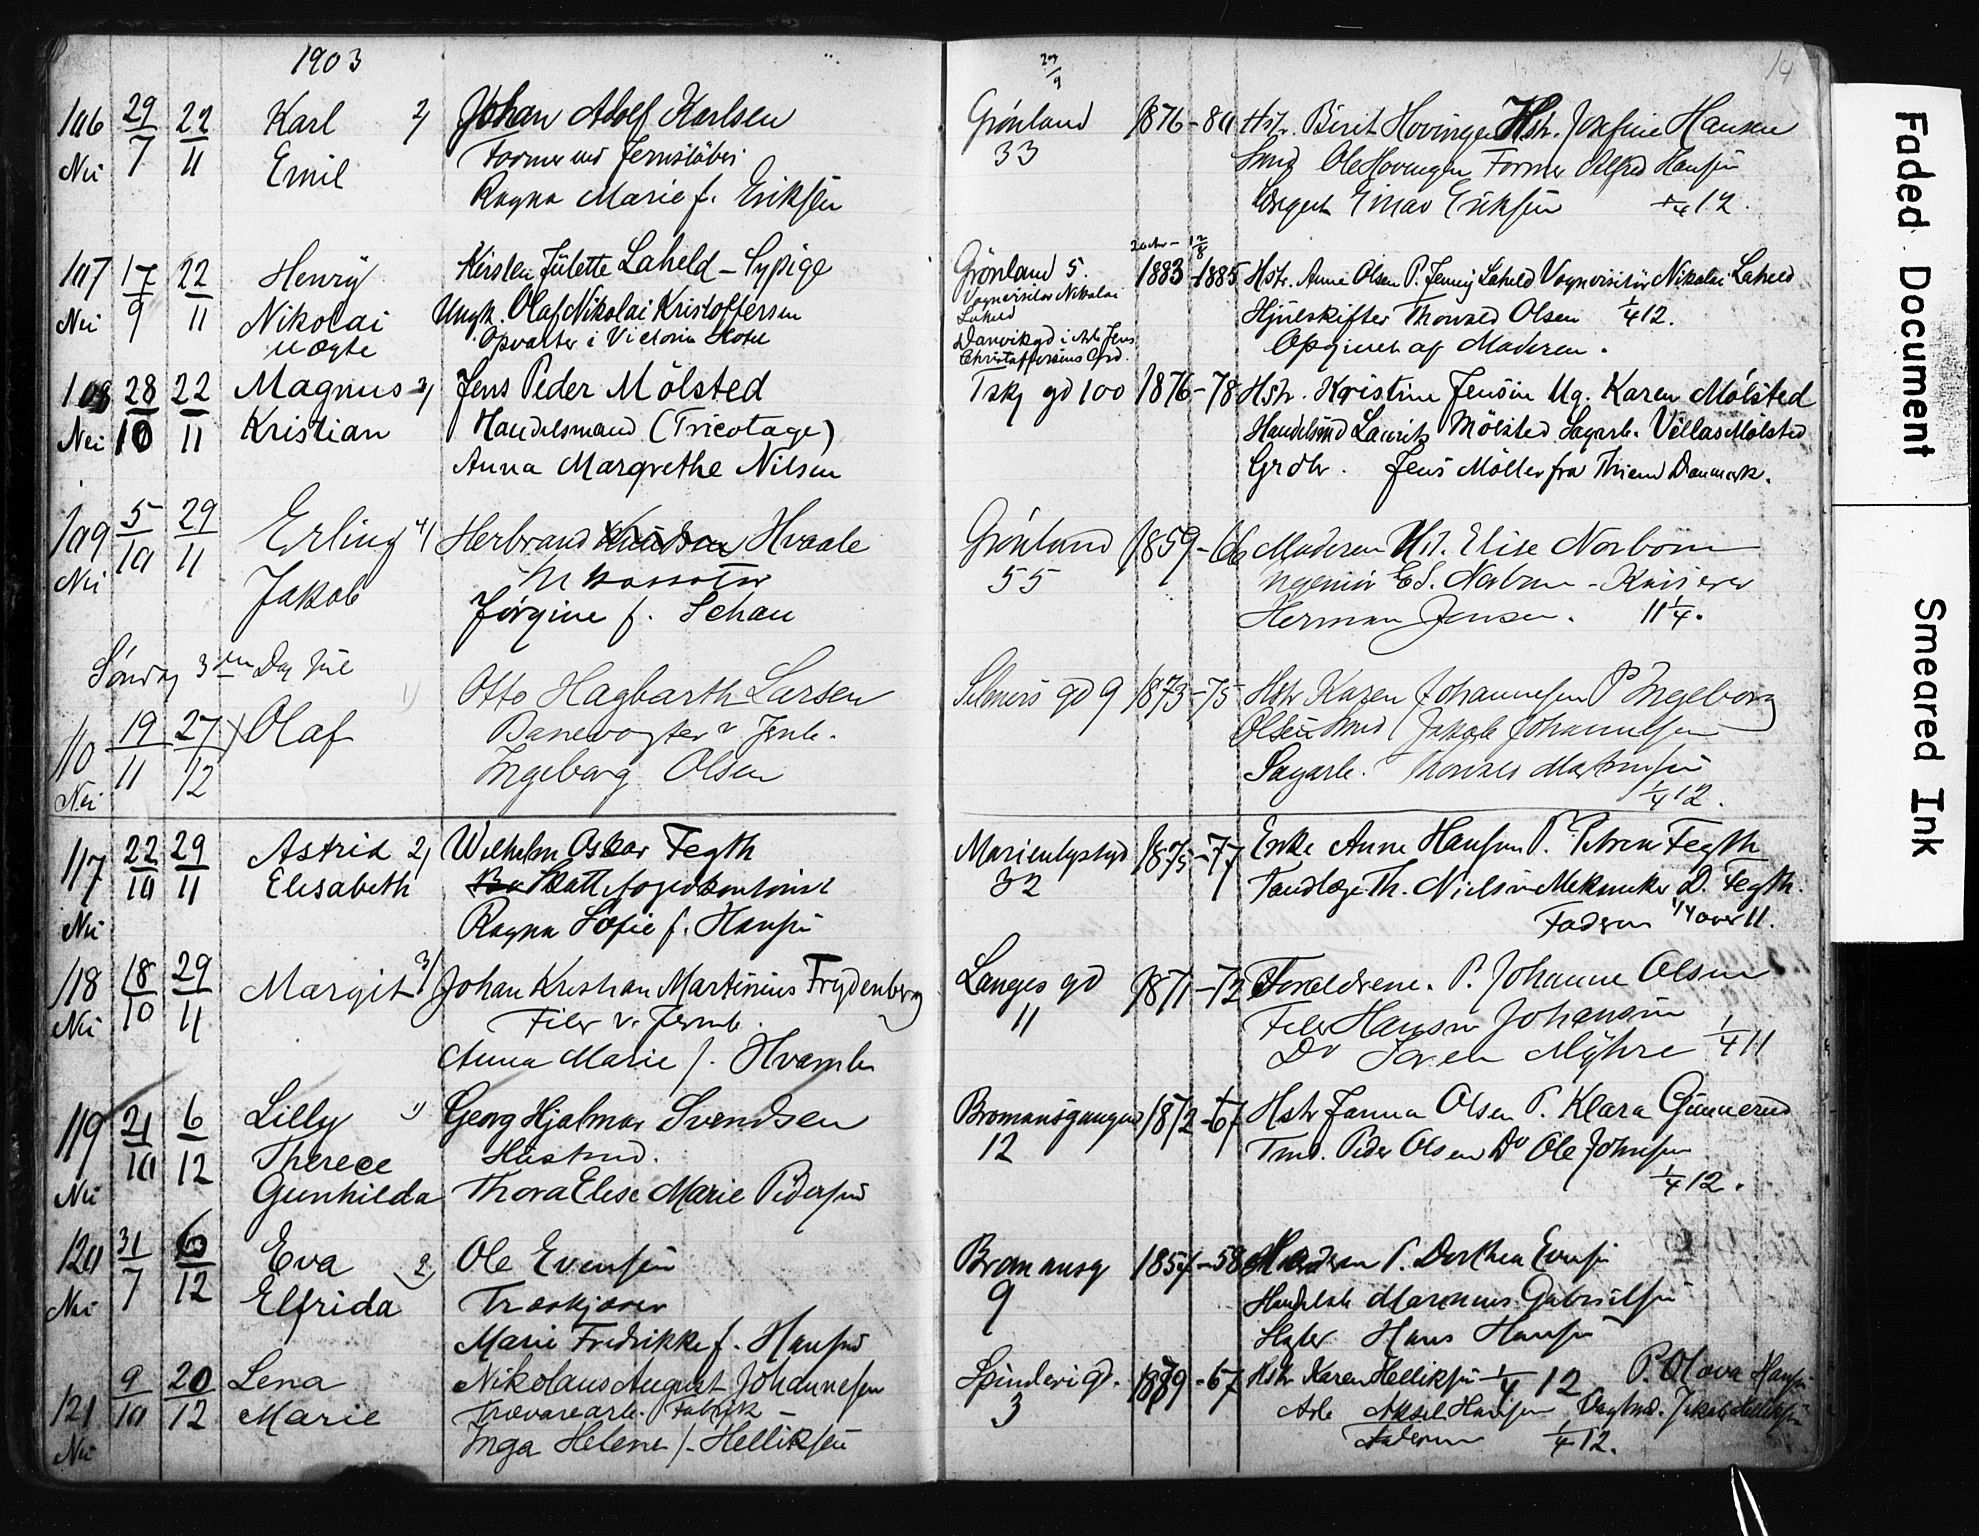 1903
29/9
14
106 29/7 22/11 Karl 2) Johan Adolf Karlsen Grønland 1876-80 Hstr. Berit Hovingen Hstr. Josefine Hansen
Nei Emil Former ved Jernstøberi 33 Smed Ole Hovengen Former Alfred Hansen
Ragna Marie f. Eriksen Einar Eriksen 1/4 12.
107 17/9 22/11 Henry Kirsten Julette Laheld - Sypige Grönland 5. 1883-1885 Hstr. Anne Olsen P. Jenny Laheld Vognvisitör Nikolai Laheld
Nei Nikolai Ungk. Olaf Nikolai Kristoffersen Vognvisitör Nikolai Laheld Hjulskifter Thorvald Olsen 1/4 12.
uægte Opvarter i Victoria Hotel Danvikgd i Arb. Jens Christoffersens Grd. Opgivet af Moderen.
108 28/10 22/11 Magnus 2) Jens Peder Mölsted Tskj gd 100 1876-78 Hstr. Kristine Jensine Ug. Karen Mölsted
Nei Kristian Handelsmand (Tricotage) Handelsmd Laurits Mölsted Sagarb. Villas Mölsted
Anna Margrethe Nilsen Grdbr. Jens Möller fra Danmark.
109 5/10 29/11 Erling 4) Herbrand Knudsen Hvaale Grønland 1859-66 Moderen Elise Norbom
Nei Jakob Inkassator 55 Ingeniör E S. Norbom - Kasserer
Jørgine f. Schau Herman Jensen. 11 1/4.
Søndag 3den Dag Jul
110 19/11 27/12 Olaf 1) Otto Hagbarth Larsen Selmers gd 9 1873-75 Hstr Karen Johannesen P Ingeborg
Nei Banevogter v Jernb. Olsen Smed Jakob Johannesen
Ingeborg Olsen Sagarb. Thorvald Martinsen
1/4 12.
117 22/10 29/11 Astrid 2) Wilhelm Oskar Fegth Marienlystgd 1875-77 Enke Anne Hansen P. Petrea Fegth
Nei Elisabeth Skattefogedkontorist 32 Tandlæge Th. Nielsen Mekaniker D. Fegth.
Ragna Sofie f. Hansen Faderen 1/4 over 11.
118 18/10 29/11 Margit 3) Johan Kristian Martinius Frydenberg Langes gd 1871-72 Forældrene. P. Johanne Olsen
Nei Filer v. Jernb. 11 Filer Hansen Johansen
Anna Marie f. Hvamb Do Soren Myhre 1/4 11
119 21/10 6/12 Lilly 1) Georg Hjalmar Svendsen Bromansgangen 1872-67 Hstr Janna Olsen P. Klara Gunnerud
Therece Husmd. 12 Tmd. Peder Olsen Do Ole Johnsen
Nei Gunhilda Thora Elise Marie Pedersen 1/4 12.
120 31/7 6/12 Eva 2) Ole Evensen Bromansg 1854-58 Moderen P. Dorthea Evensen
Nei Elfrida Træskjærer 9 Marenius Gabrielsen
Marie Fredrikke f. Hansen Hans Hansen
121 9/10 20/12 Lena Nikolaus August Johannesen Spinderigd. 1889-67 Hstr Karen Helliksen 1/4 12 P. Olava Hansen
Marie Trævarearb. Fabrik 3 Arb Aksel Hansen Jakob Helliksen
Nei Inga Helene f. Helliksen Faderen 1/4 12.
Faded Document
Smeared Ink